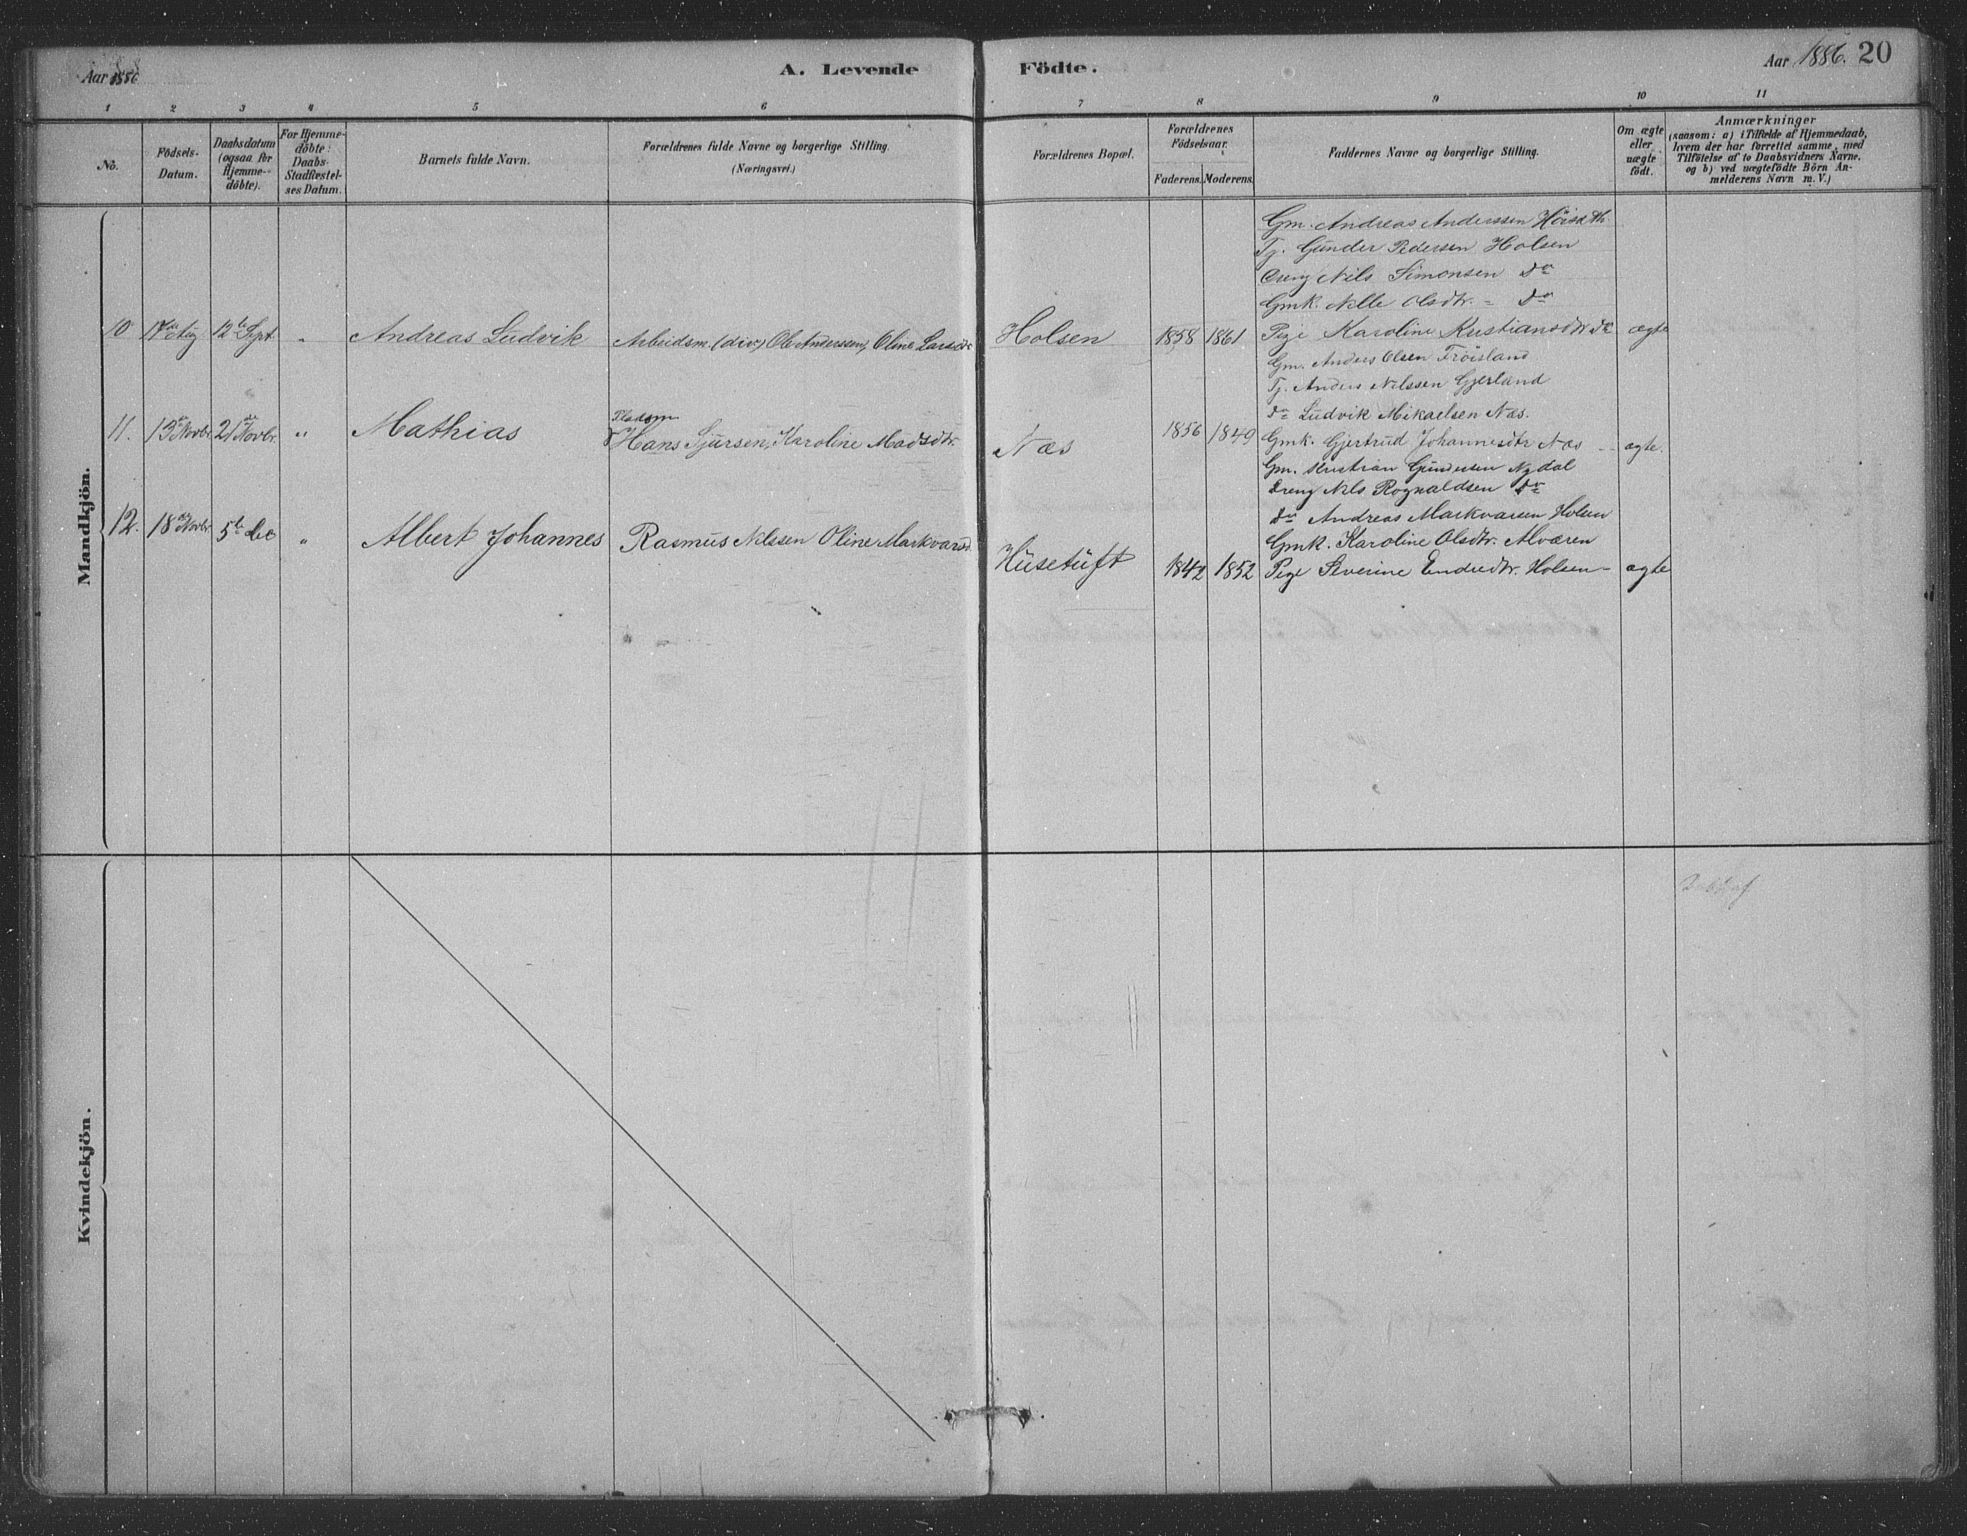 Aar 1886 A. Levende Födte. Aar 1886. 20
1 2 3 4 5 6 7 8 9 10 11
No.
Födsels-
Datum.
Daabsdatum
(ogsaa for
Hjemme-
döbte).
For Hjemme-
döbte:
Daabs-
Stadfæstel-
ses Datum.
Barnets fulde Navn.
Forældrenes fulde Navne og borgerlige Stilling.
(Næringsvei.)
Forældrenes Bopæl.
Forældrenes
Födselsaar.
Faderens. Moderens.
Faddernes Navne og borgerlige Stilling.
Om ægte
eller
uægte
födt.
Anmærkninger
(saasom: a) i Tilfælde af Hjemmedaab,
hvem der har forrettet samme, med
Tilföielse af to Daabsvidners Navne,
og b) ved uægtefödte Börn An-
melderens Navn m. V.)
Mandkjön.
Gm. Andreas Anderssen
Tj. Gunder Pedersen Holsen
Dreng Nils Simonsen do
Gmk. Nille Olsdtr. - do
10 12te Sept. " Andreas Ludvik Arbeidsm. (div) Ole Anderssen, Oline Larsdtr Holsen 1858 1861 Pige Karoline Kristiansdtr do ægte
Gm. Anders Olsen Tröisland
Tj. Anders Nilssen Gjerland
do Ludvik Mikaelsen Næs.
11. 13de Novbr. 21de Novbr. " Mathias Pladsm Hans Sjursen, Karoline Madsdtr. Næs 1856 1849 Gmk. Gjertrud Johannesdtr Næs - ægte.
Gm. Kristian Gundersen Nydal
Dreng Nils Rognaldsen do
do Andreas Markvarsen Holsen
Gmk. Karoline Olsdtr. Alværen
12. 18de Novbr. 5te Dec " Albert Johannes Rasmus Nilssen Oline Markvarsd. Husetuft 1842 1852 Pige Severine Endredtr. Holsen - ægte
Kvindekjön.